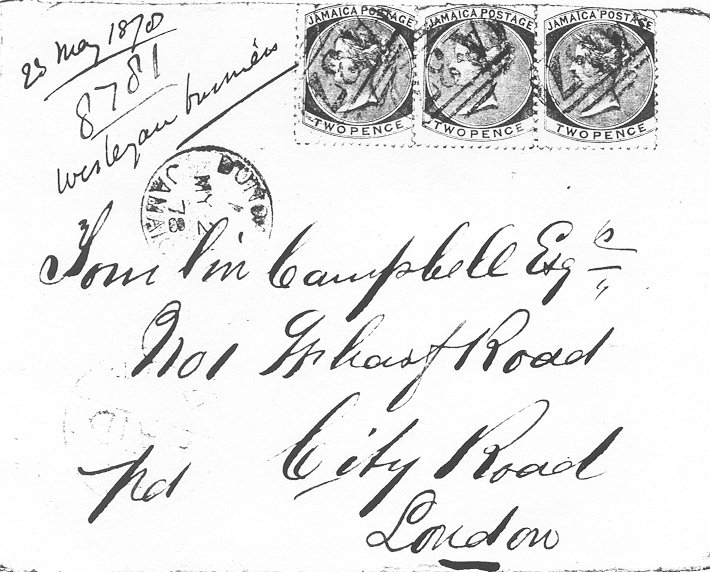 23 May 1878
8781
Wesleyan business
JAMAICA POSTAGE
TWO PENCE
JAMAICA POSTAGE
TWO PENCE
JAMAICA POSTAGE
TWO PENCE
MY 2
78
JAMAIC
Tomlin Campbell Esqre
No 1 Wharf Road
City Road
Pd
London